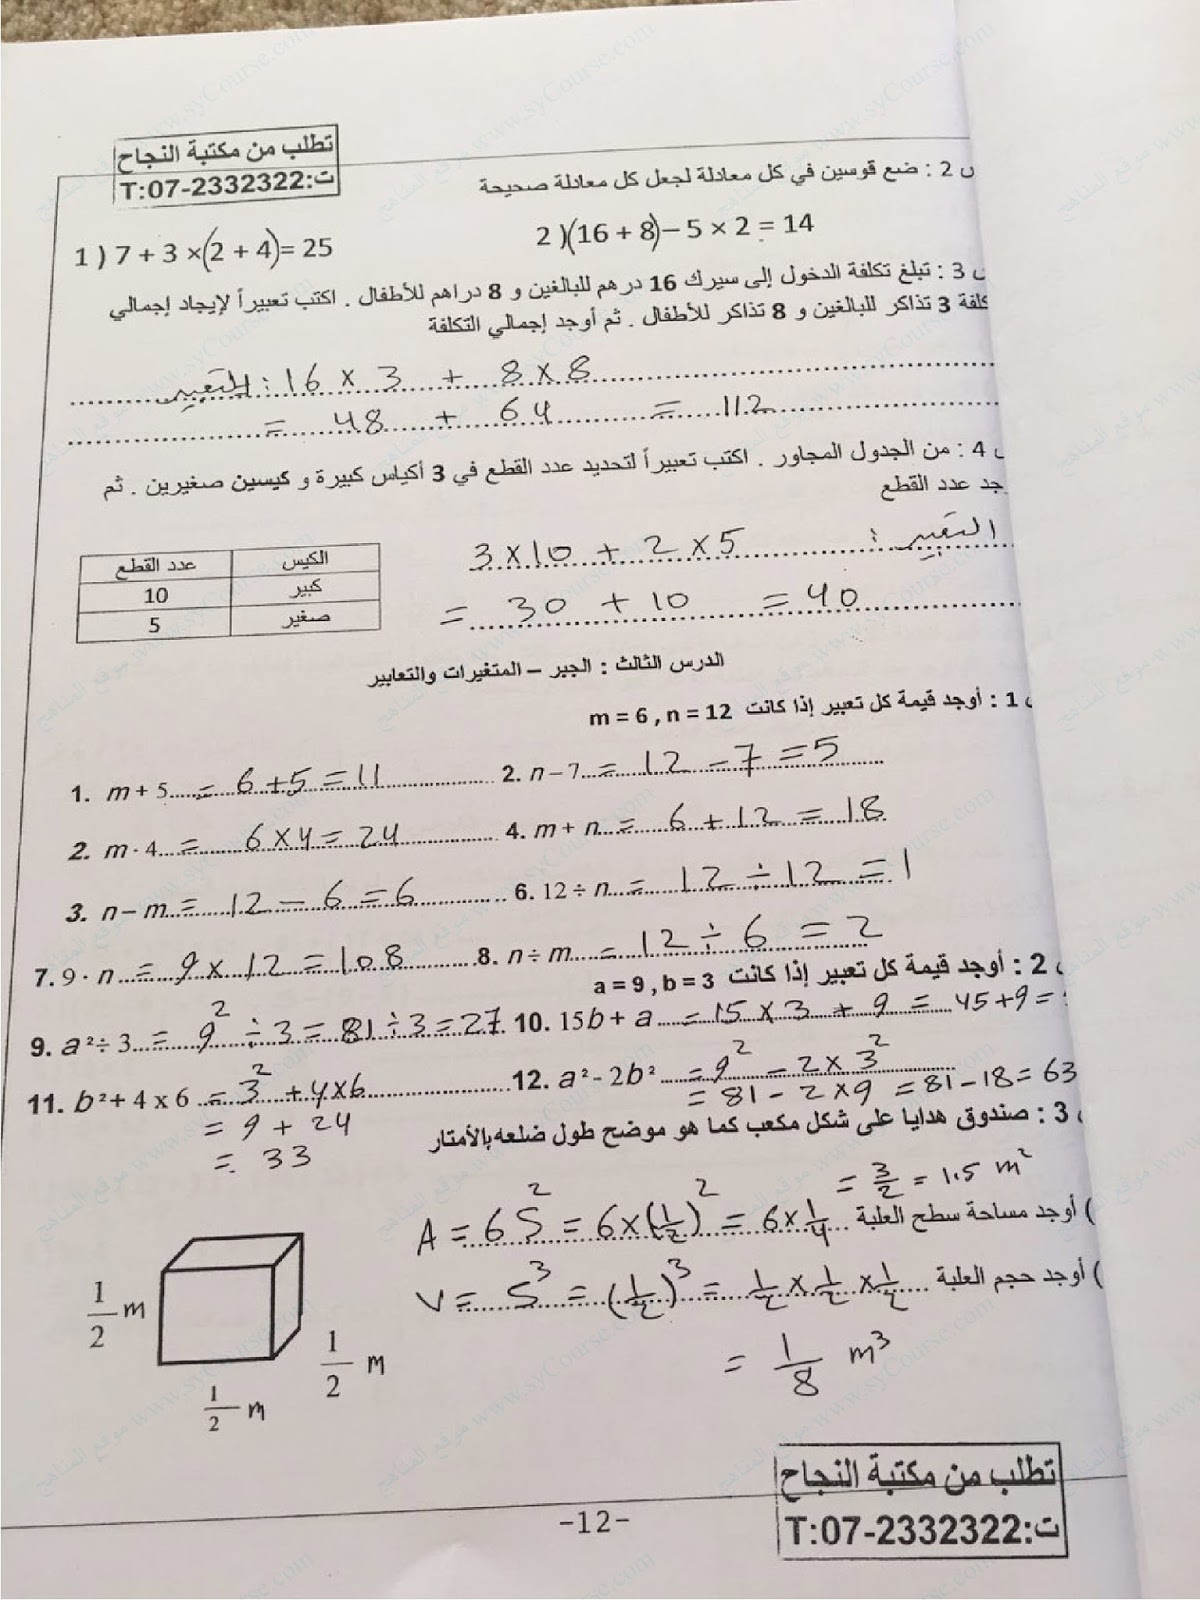 تطلب من مكتبة النجاح
ت:T:07-2332322
2 : ضع قوسين في كل معادلة لجعل كل معادلة صحيحة
1 ) 7 + 3 × (2 + 4) = 25
2 ) (16 + 8) – 5 × 2 = 14
3 : تبلغ تكلفة الدخول إلى سيرك 16 درهم للبالغين و 8 دراهم للأطفال . اكتب تعبيراً لإيجاد إجمالي
كلفة 3 تذاكر للبالغين و 8 تذاكر للأطفال . ثم أوجد إجمالي التكلفة
التعبير : 16 × 3 + 8 × 8
= 48 + 64 = 112
4 : من الجدول المجاور . اكتب تعبيراً لتحديد عدد القطع في 3 أكياس كبيرة و كيسين صغيرين . ثم
جد عدد القطع
التعبير : 3 × 10 + 2 × 5
= 30 + 10 = 40
الكيس عدد القطع
كبير 10
صغير 5
الدرس الثالث : الجبر – المتغيرات والتعابير
1 : أوجد قيمة كل تعبير إذا كانت m = 6 , n = 12
1. m + 5 = 6 + 5 = 11
2. n – 7 = 12 – 7 = 5
2. m · 4 = 6 × 4 = 24
4. m + n = 6 + 12 = 18
3. n – m = 12 – 6 = 6
6. 12 ÷ n = 12 ÷ 12 = 1
7. 9 · n = 9 × 12 = 108
8. n ÷ m = 12 ÷ 6 = 2
2 : أوجد قيمة كل تعبير إذا كانت a = 9 , b = 3
9. a² ÷ 3 = 9² ÷ 3 = 81 ÷ 3 = 27
10. 15b + a = 15 × 3 + 9 = 45 + 9 =
11. b² + 4 x 6 = 3² + 4 × 6
= 9 + 24
= 33
12. a² - 2b² = 9² – 2 × 3²
= 81 – 2 × 9 = 81 – 18 = 63
3 : صندوق هدايا على شكل مكعب كما هو موضح طول ضلعه بالأمتار
= 3/2 = 1.5 m²
) أوجد مساحة سطح العلبة A = 6S² = 6 × (1/2)² = 6 × 1/4
) أوجد حجم العلبة V = S³ = (1/2)³ = 1/2 × 1/2 × 1/2
= 1/8 m³
1/2 m
1/2 m
1/2 m
تطلب من مكتبة النجاح
ت:T:07-2332322
-12-
موقع المناهج www.syCourse.com